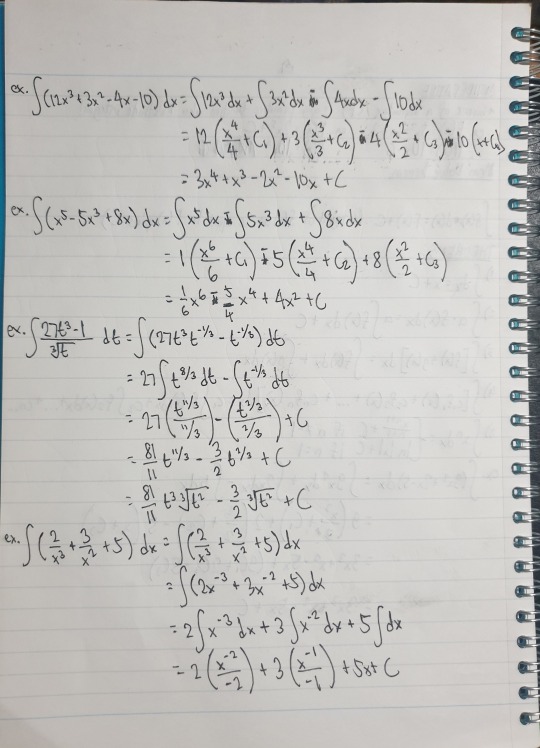 ex. ∫(12x³+3x²-4x-10) dx = ∫12x³dx + ∫3x²dx - ∫4xdx - ∫10dx
= 12(x⁴/4 + C₁) + 3(x³/3 + C₂) - 4(x²/2 + C₃) - 10(x+C₄)
= 3x⁴ + x³ - 2x² - 10x + C
ex. ∫(x⁵ - 5x³ + 8x) dx = ∫x⁵dx - ∫5x³dx + ∫8xdx
= 1(x⁶/6 + C₁) - 5(x⁴/4 + C₂) + 8(x²/2 + C₃)
= 1/6 x⁶ - 5/4 x⁴ + 4x² + C
ex. ∫ (27t³-1)/∛t dt = ∫(27t³t^(-1/3) - t^(-1/3)) dt
= 27∫t^(8/3) dt - ∫t^(-1/3) dt
= 27(t^(11/3)/(11/3)) - (t^(2/3)/(2/3)) + C
= 81/11 t^(11/3) - 3/2 t^(2/3) + C
= 81/11 t³ ∛t² - 3/2 ∛t² + C
ex. ∫(2/x³ + 3/x² + 5) dx = ∫(2/x³ + 3/x² + 5) dx
= ∫(2x⁻³ + 3x⁻² + 5) dx
= 2∫x⁻³dx + 3∫x⁻²dx + 5∫dx
= 2(x⁻²/-2) + 3(x⁻¹/-1) + 5x + C